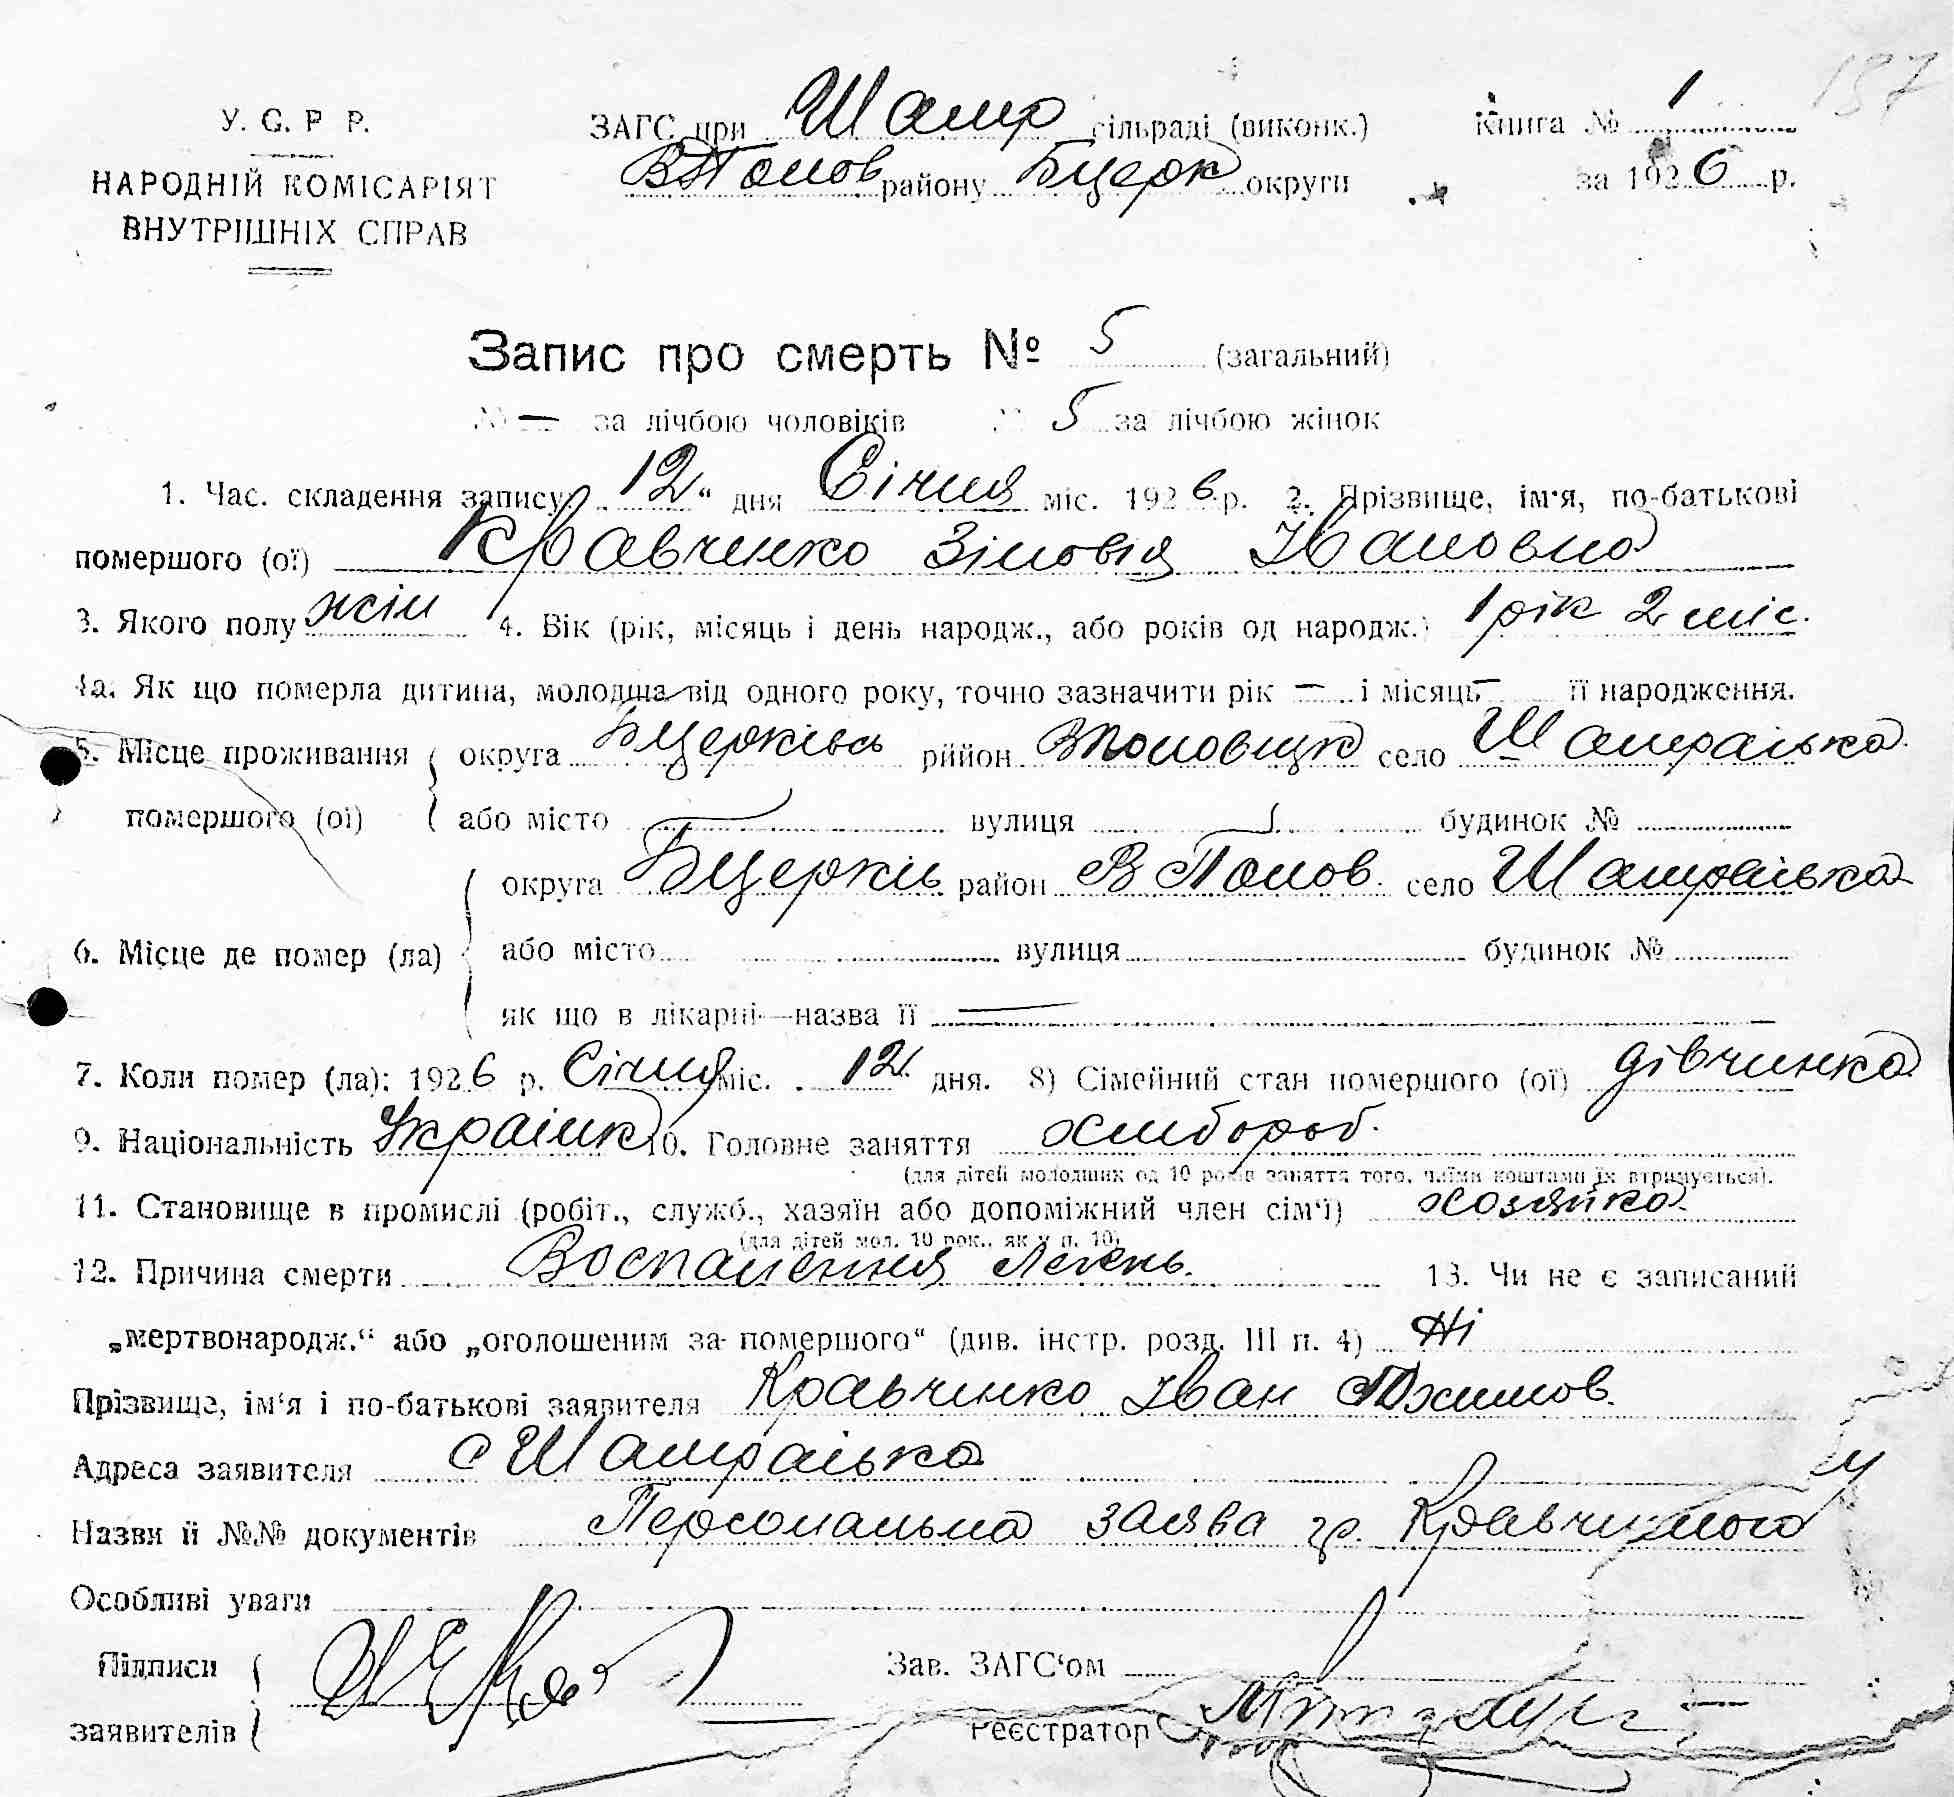 187
У. С. Р. Р.
НАРОДНІЙ КОМІСАРІЯТ
ВНУТРІШНІХ СПРАВ
ЗАГС при Шамр сільраді (виконк.)
ВПолов району Бцерк округи
Книга № 1
за 1926 р.
Запис про смерть № 5 (загальний)
№ — за лічбою чоловіків № 5 за лічбою жінок
1. Час. складення запису 12 " дня Січня міс. 1926 р. 2. Прізвище, ім'я, по-батькові
помершого (ої) Кравченко Зіновія Івановна
3. Якого полу жін 4. Вік (рік, місяць і день народж., або років од народж.) 1 рік 2 міс.
4а. Як що померла дитина, молодша від одного року, точно зазначити рік — і місяць — її народження.
5. Місце проживання округа Бцерківсь рийон ВПоловецк село Шамраївка
помершого (ої) або місто вулиця будинок №
округа Бцерків район В Полов. село Шамраївка
6. Місце де помер (ла) або місто вулиця будинок №
як що в лікарні—назва її —
7. Коли помер (ла): 1926 р. Січня міс. 12 дня. 8) Сімейний стан помершого (ої) дівчинка
9. Національність Україінк 10. Головне заняття хлібороб.
(для дітей молодших од 10 років заняття того, чиїми коштами їх втримується).
11. Становище в промислі (робіт., служб., хазяїн або допоміжний член сім'ї) хозяйка
(для дітей мол. 10 рок., як у п. 10)
12. Причина смерти Воспаления Легень. 13. Чи не є записаний
„мертвонародж.“ або „оголошеним за помершого“ (див. інстр. розд. III п. 4) Ні
Прізвище, ім'я і по-батькові заявителя Кравченко Іван
Адреса заявителя с Шамраівка
Назви її №№ документів Персональна заява гр. Кравченкого
Особливі уваги
Підписи Зав. ЗАГС'ом
заявителів Реєстратор